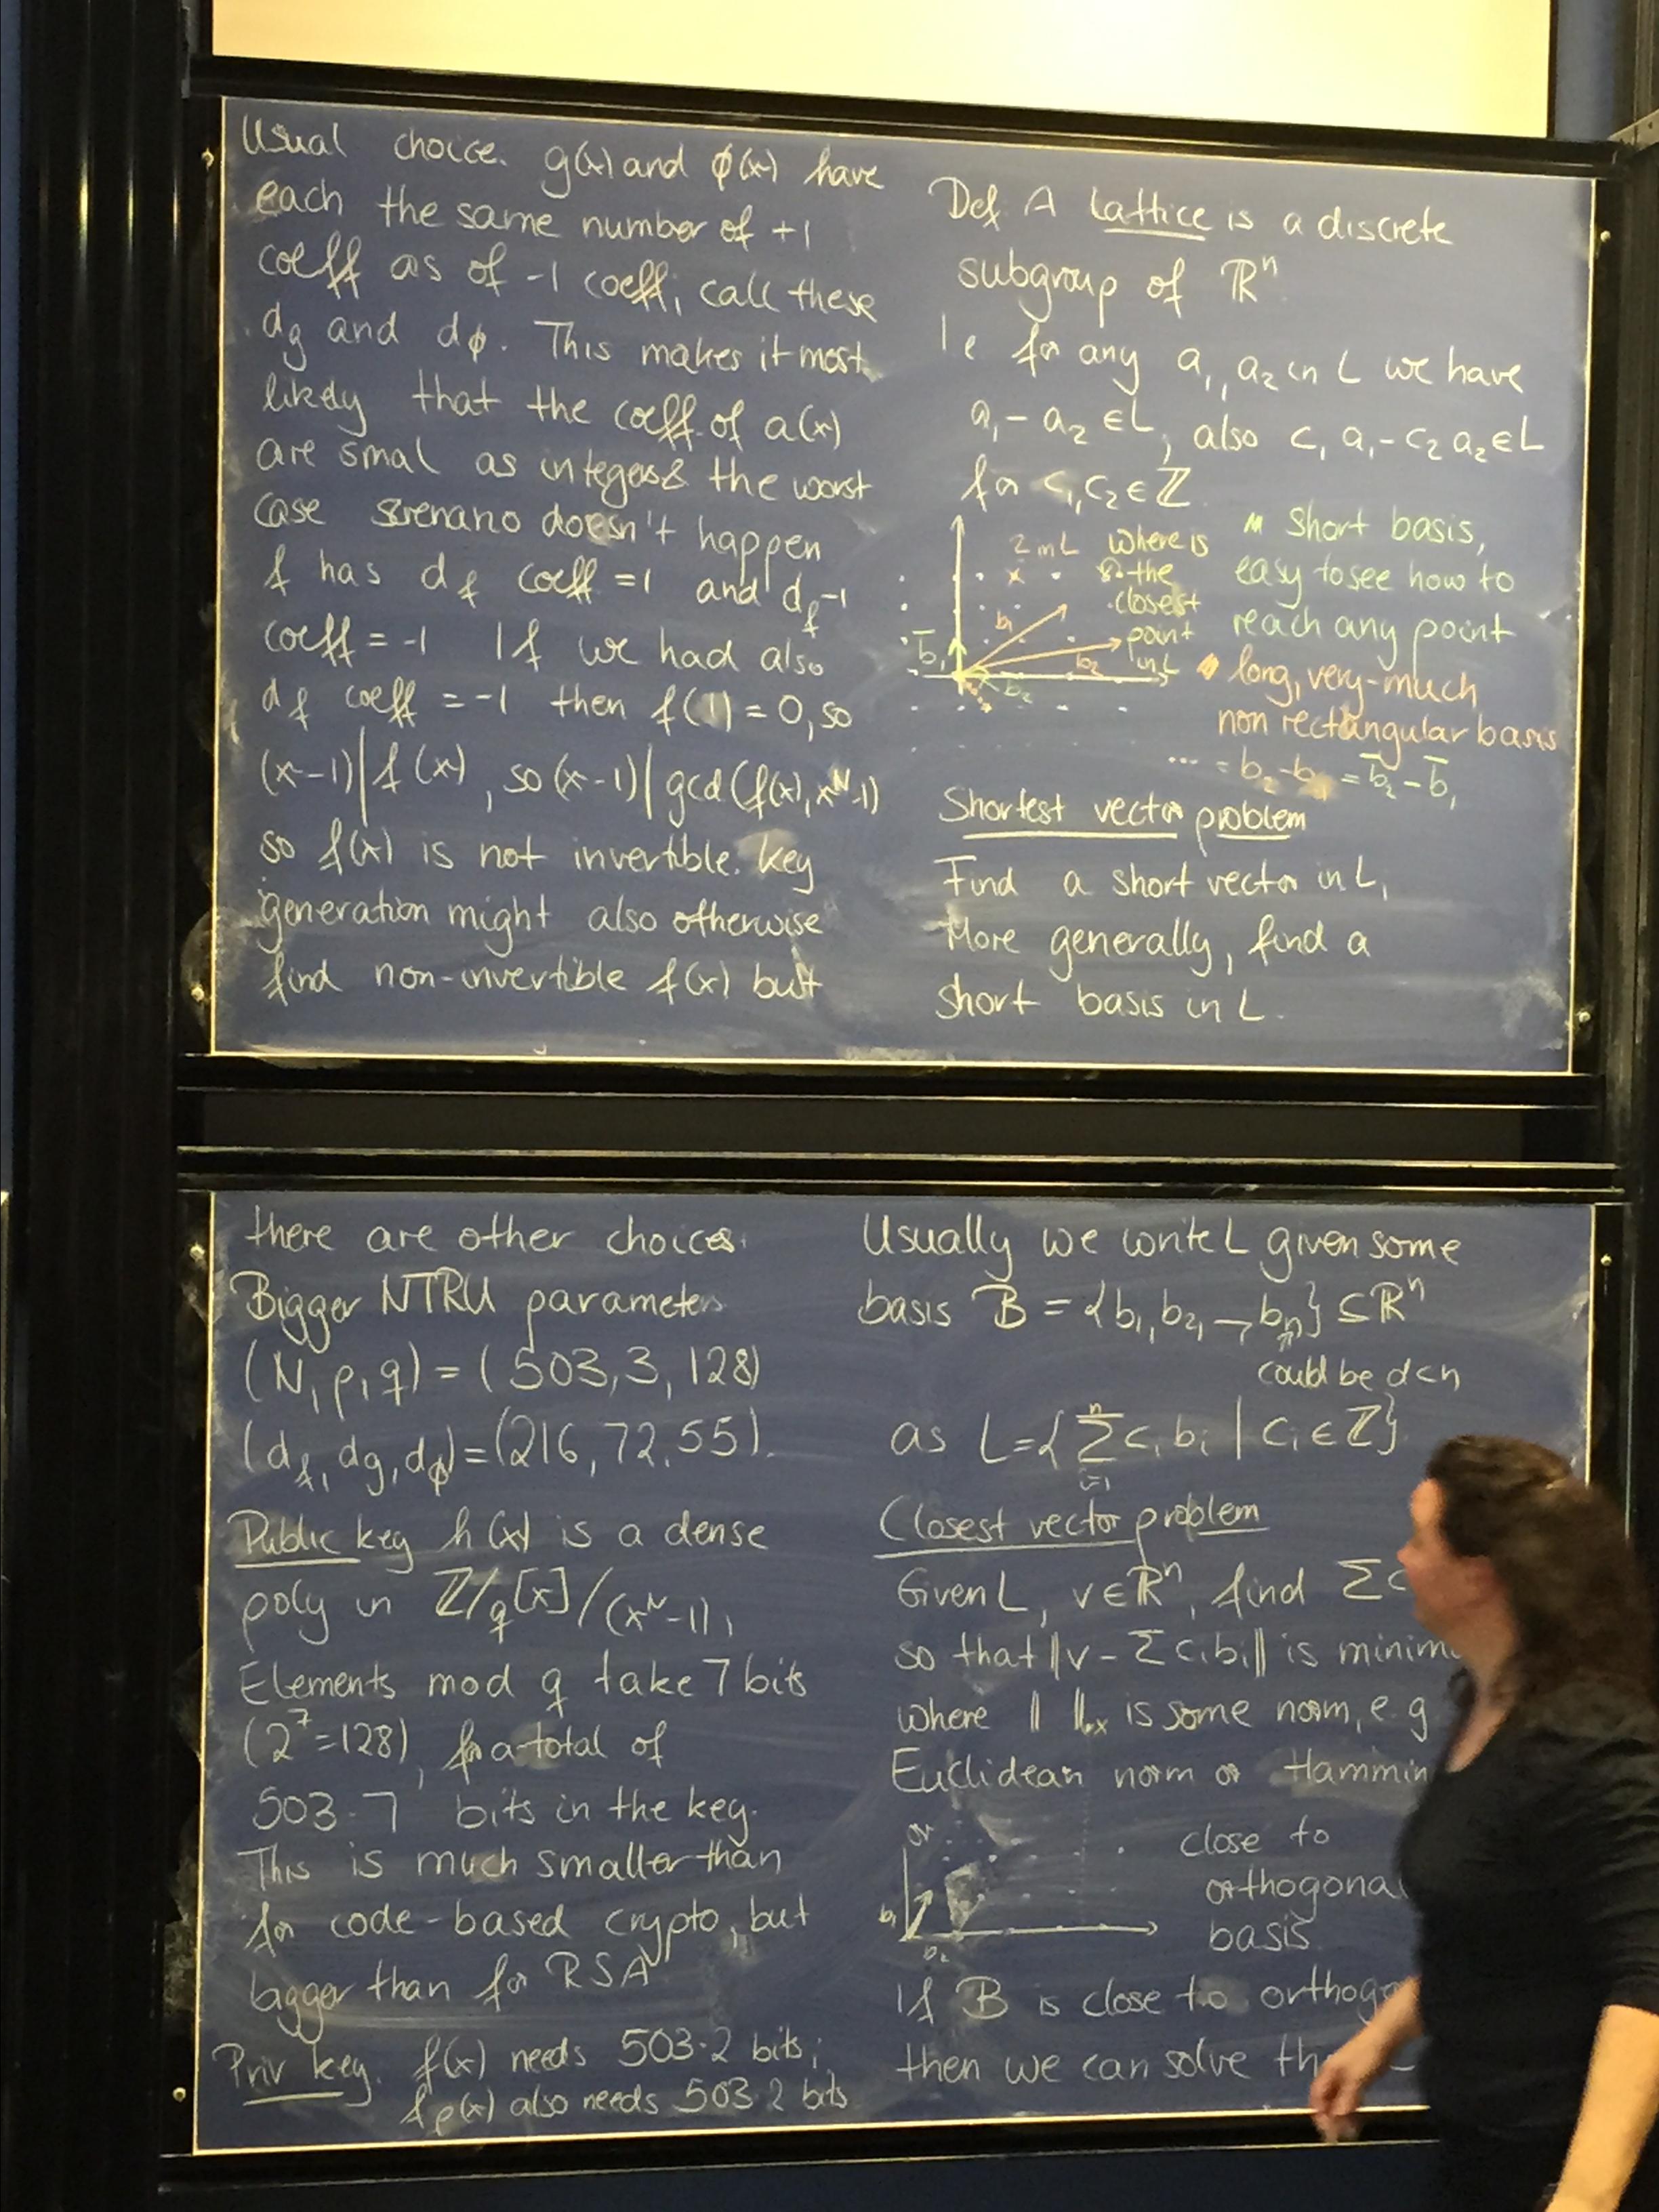 Usual choice. g(x) and ϕ(x) have
each the same number of +1
coeff as of -1 coeff, call these
d_g and d_ϕ. This makes it most
likely that the coeff. of a(x)
are smal as integers & the worst
case scenario doesn't happen
f has d_f coeff = 1 and d_f-1
coeff = -1 If we had also
d_f coeff = -1 then f(1) = 0, so
(x-1)|f(x), so (x-1)|gcd(f(x), x^N-1)
so f(x) is not invertible. Key
generation might also otherwise
find non-invertible f(x) but
Def. A Lattice is a discrete
subgroup of ℝ^n
Ie for any a_1, a_2 in L we have
a_1 - a_2 ∈ L, also c_1 a_1 - c_2 a_2 ∈ L
for c_1, c_2 ∈ ℤ.
Where is
the
closest
point
in L
b_1
b_2
b̄_1
b̄_2
short basis,
easy to see how to
reach any point
long, very-much
non rectangular basis
... = b_2 - b_1 = b̄_2 - b̄_1
Shortest vector problem
Find a short vector in L,
More generally, find a
short basis in L.
there are other choices.
Bigger NTRU parameters
(N, p, q) = (503, 3, 128)
(d_f, d_g, d_ϕ) = (216, 72, 55).
Public key h(x) is a dense
poly in ℤ/q[x]/(x^N-1),
Elements mod q take 7 bits
(2^7=128), for a total of
503·7 bits in the key.
This is much smaller than
for code-based crypto, but
bigger than for RSA
Priv key. f(x) needs 503·2 bits;
f_p(x) also needs 503·2 bits
Usually we write L given some
basis B = {b_1, b_2, ─, b_n} ⊆ ℝ^n
could be d<n
as L = {∑_{i=1}^n c_i b_i | c_i ∈ ℤ}
Closest vector problem
Given L, v ∈ ℝ^n, find ∑c
so that ||v - ∑c_i b_i|| is minim
where || ||_x is some norm, e.g
Euclidean norm or Hammin
or
b_1
b_2
close to
orthogona
basis.
If B is close to orthogo
then we can solve th